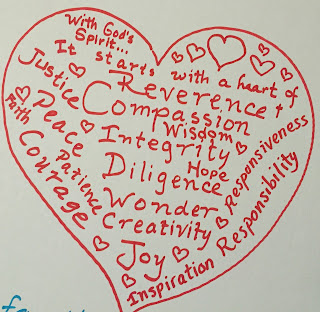 With God's
Spirit...
It starts with a heart of
Reverence †
Compassion
Wisdom
Integrity
Hope
Diligence
Wonder
Creativity
Joy
Justice
Peace
Faith
Patience
Courage
Responsiveness
Responsibility
Inspiration